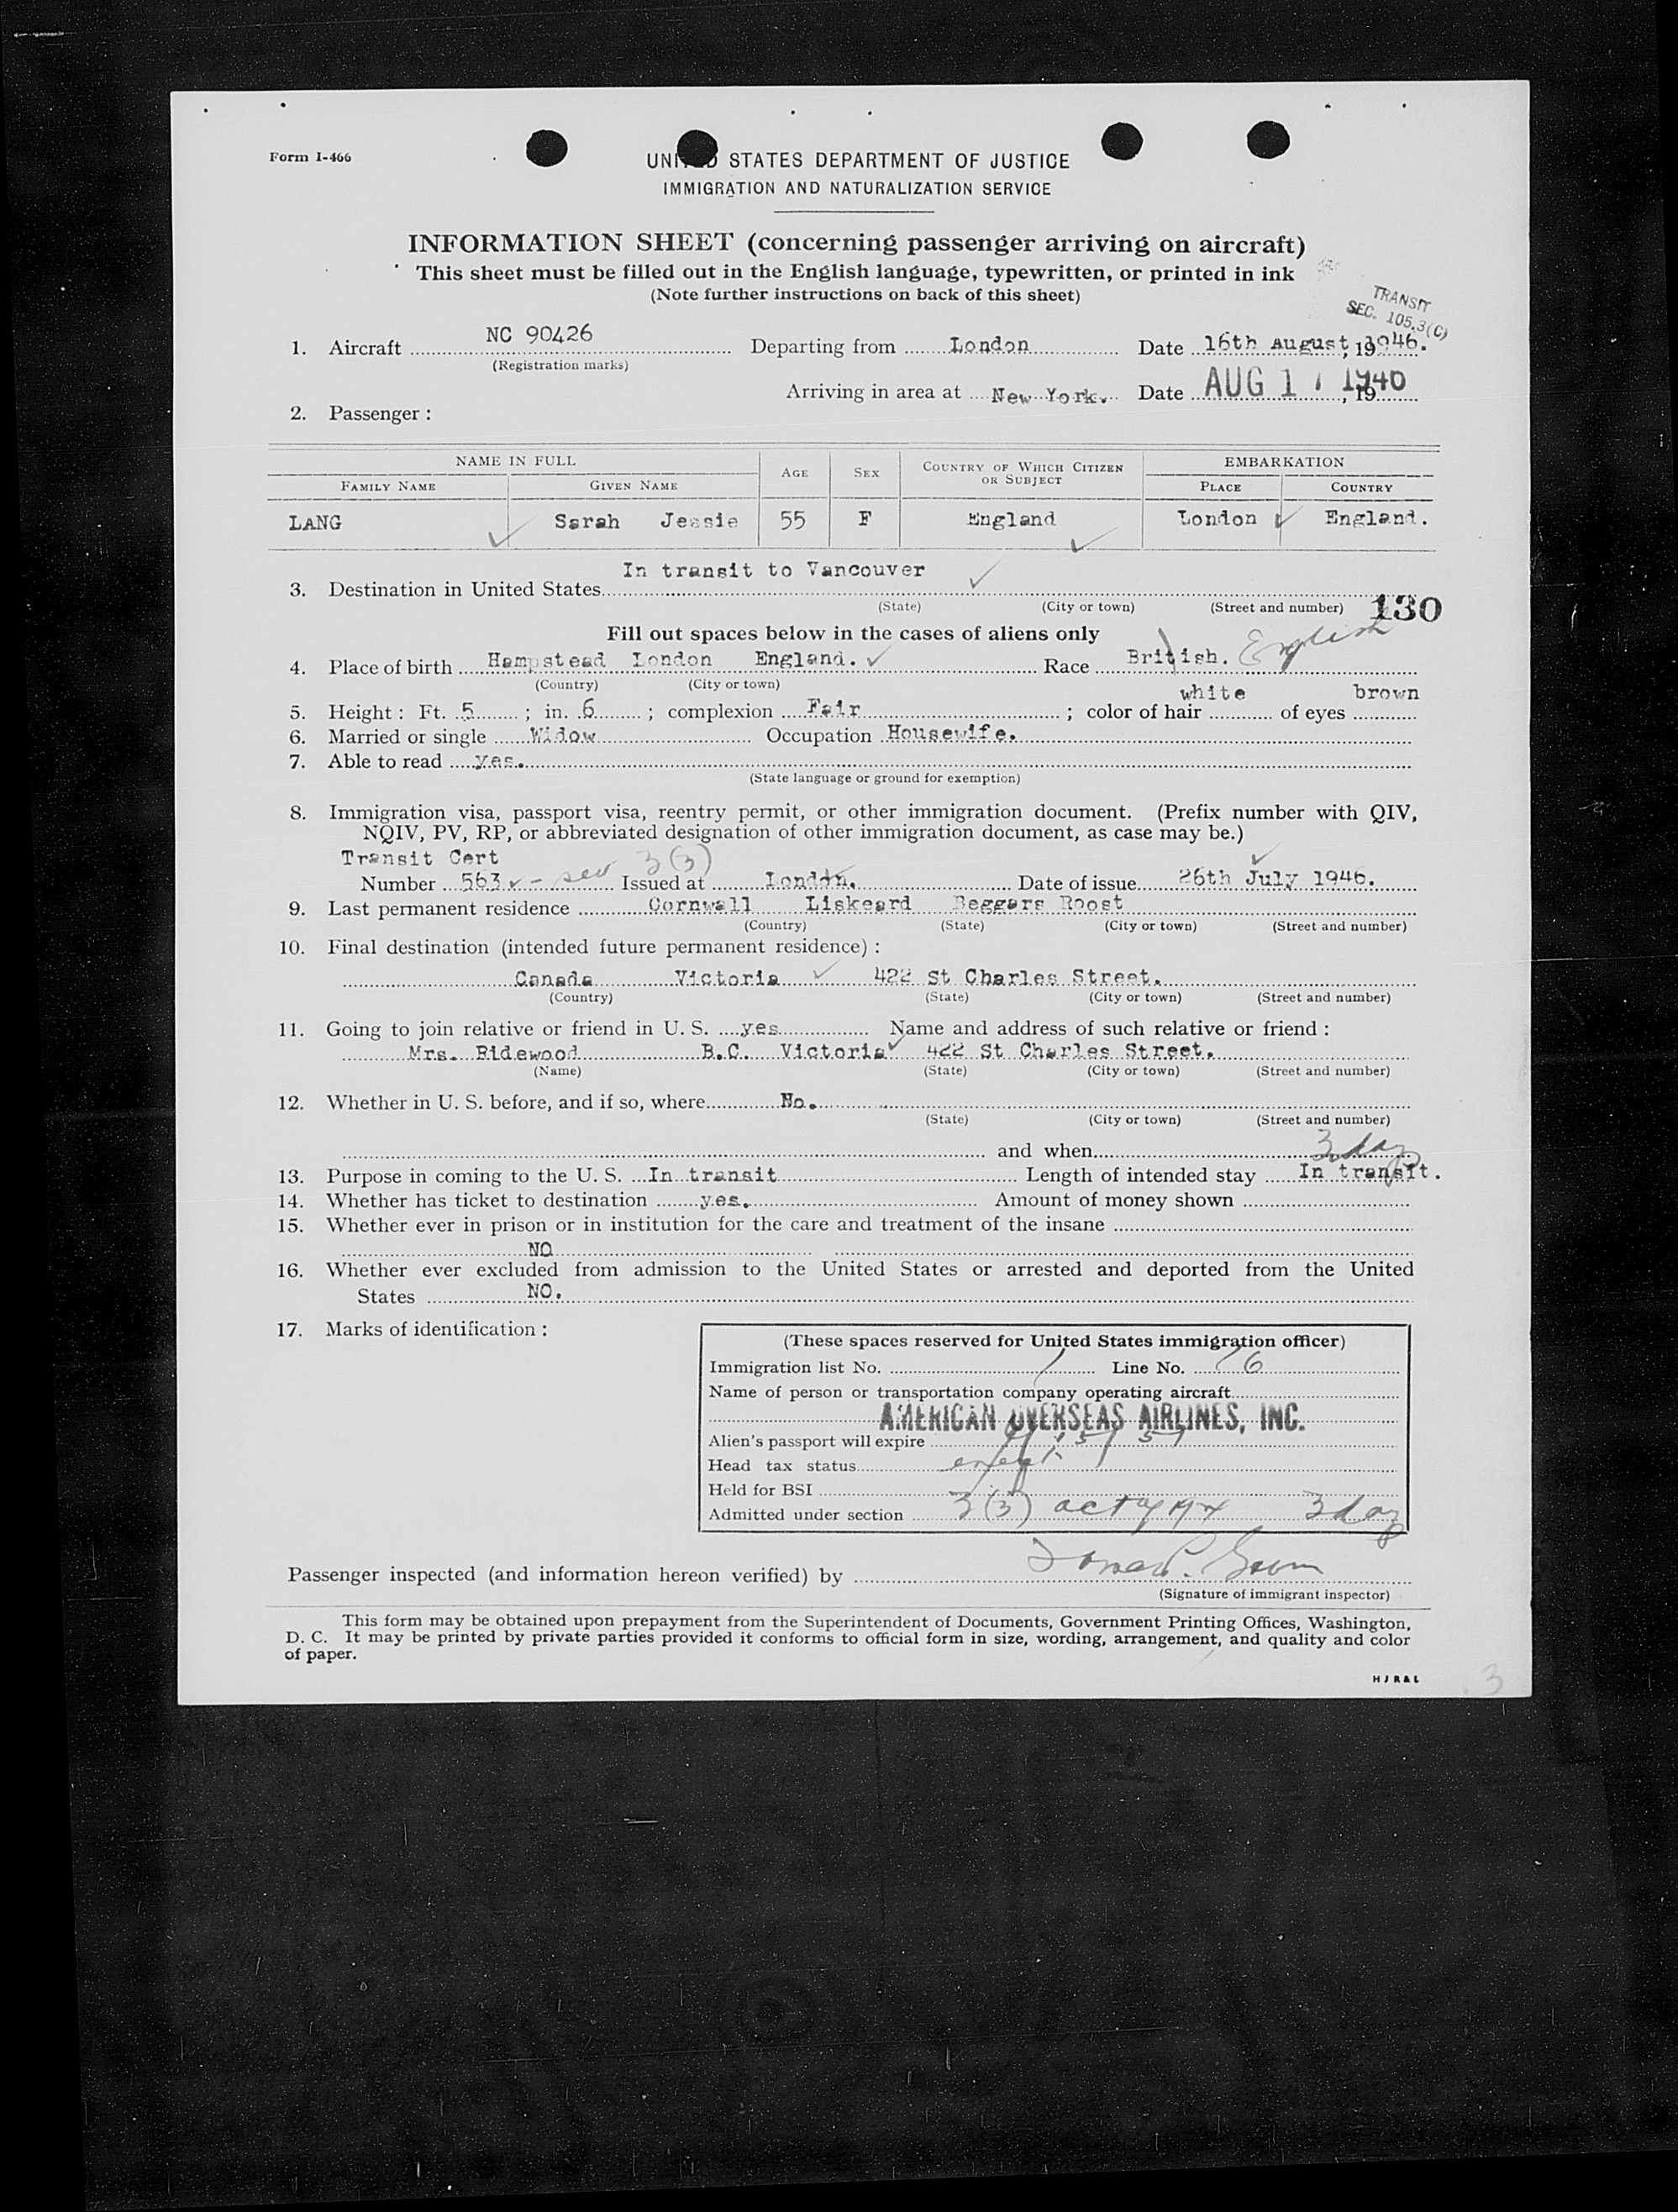 Form I-466
UNITED STATES DEPARTMENT OF JUSTICE
IMMIGRATION AND NATURALIZATION SERVICE
INFORMATION SHEET (concerning passenger arriving on aircraft)
This sheet must be filled out in the English language, typewritten, or printed in ink
(Note further instructions on back of this sheet)
TRANSIT
SEC. 105.3(C)
1. Aircraft NC 90426 Departing from London Date 16th August, 1946.
(Registration marks)
Arriving in area at New York. Date AUG 1 1946, 19
2. Passenger :
NAME IN FULL AGE SEX COUNTRY OF WHICH CITIZEN OR SUBJECT EMBARKATION
FAMILY NAME GIVEN NAME PLACE COUNTRY
LANG Sarah Jessie 55 F England London England.
3. Destination in United States In transit to Vancouver
(State) (City or town) (Street and number) 130
Fill out spaces below in the cases of aliens only
4. Place of birth Hampstead London England. Race British. English
(Country) (City or town)
5. Height : Ft. 5 ; in. 6 ; complexion Fair ; color of hair white of eyes brown
6. Married or single Widow Occupation Housewife.
7. Able to read yes.
(State language or ground for exemption)
8. Immigration visa, passport visa, reentry permit, or other immigration document. (Prefix number with QIV,
NQIV, PV, RP, or abbreviated designation of other immigration document, as case may be.)
Transit Cert
Number 563 - sec 3(3) Issued at London. Date of issue 26th July 1946.
9. Last permanent residence Cornwall Liskeard Beggars Roost
(Country) (State) (City or town) (Street and number)
10. Final destination (intended future permanent residence) :
Canada Victoria 422 St Charles Street.
(Country) (State) (City or town) (Street and number)
11. Going to join relative or friend in U. S. yes Name and address of such relative or friend :
Mrs. Ridewood B.C. Victoria 422 St Charles Street.
(Name) (State) (City or town) (Street and number)
12. Whether in U. S. before, and if so, where No.
(State) (City or town) (Street and number)
and when
3 day
13. Purpose in coming to the U. S. In transit Length of intended stay In transit.
14. Whether has ticket to destination yes. Amount of money shown
15. Whether ever in prison or in institution for the care and treatment of the insane
NO
16. Whether ever excluded from admission to the United States or arrested and deported from the United
States NO.
17. Marks of identification :
(These spaces reserved for United States immigration officer)
Immigration list No. 1 Line No. 16
Name of person or transportation company operating aircraft
AMERICAN OVERSEAS AIRLINES, INC.
Alien's passport will expire
Head tax status exempt
Held for BSI
Admitted under section 3(3) act of 1924 3 day
Passenger inspected (and information hereon verified) by
(Signature of immigrant inspector)
This form may be obtained upon prepayment from the Superintendent of Documents, Government Printing Offices, Washington,
D. C. It may be printed by private parties provided it conforms to official form in size, wording, arrangement, and quality and color
of paper.
H J R & L
3